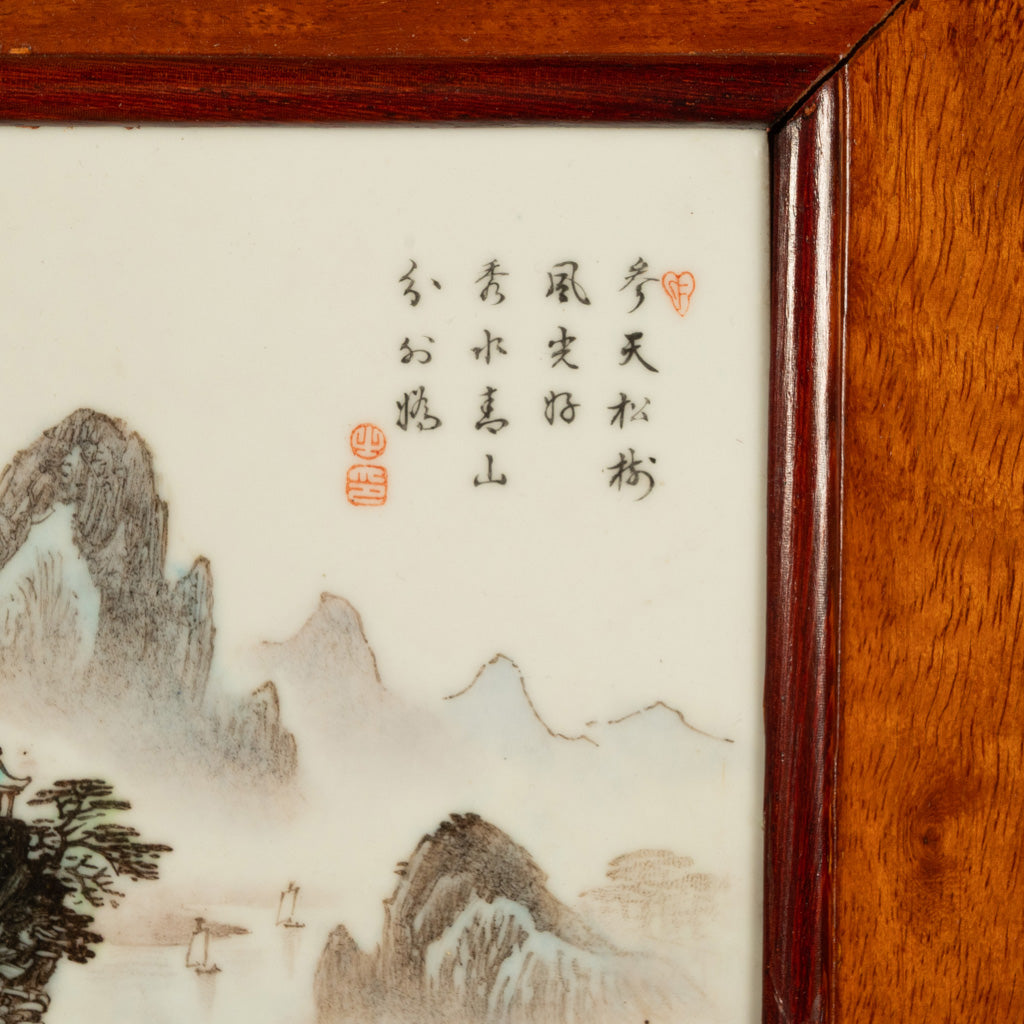 参天松樹
風光好
秀水青山
分外嬌
之印